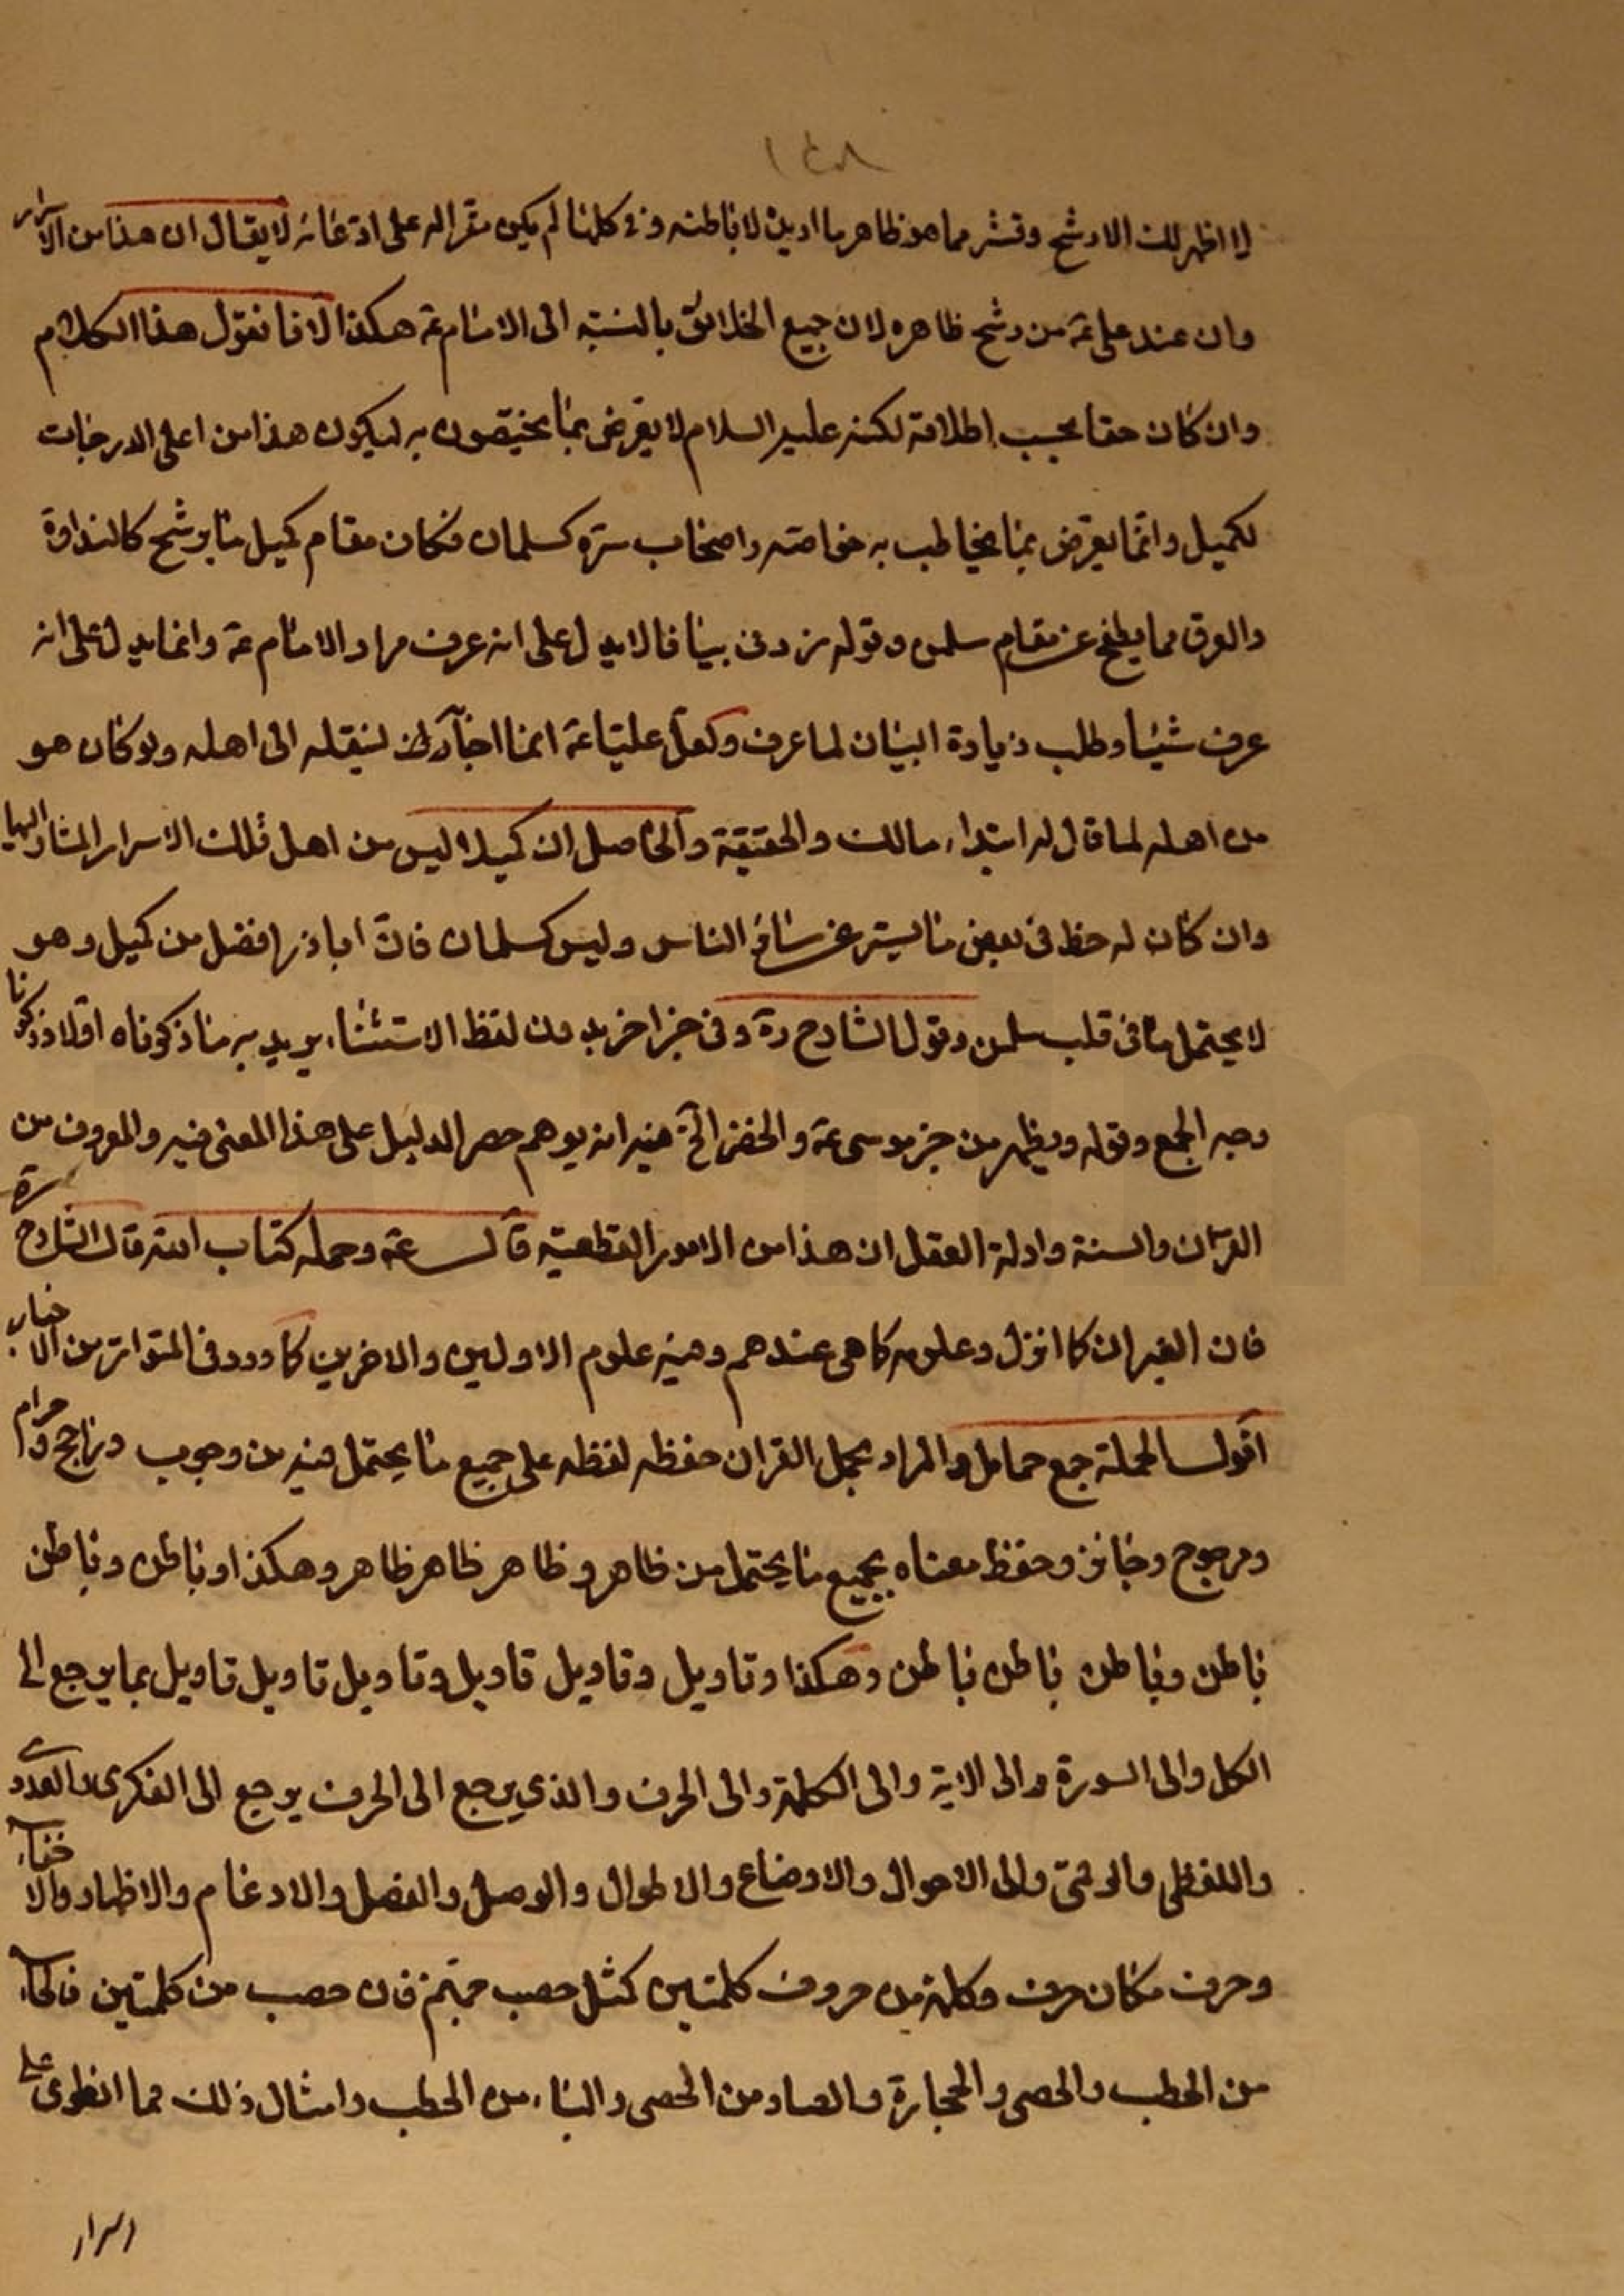 ١٤٨
لا اظهر لك الا رشح وقشر مما هو ظاهر ما اريد لا باطنه وفى كلهما لم يكن مقرا له على ادعائه لا يقال ان هذا من الاسرار
وان عند على ع من رشح ظاهره لان جميع الخلائق بالنسبة الى الامام ع هكذا لانا نقول هذا الكلام
وان كان حقا بحسب اطلاقه لكنه عليه السلام لا يعرض بما يختصون به ليكون هذا من اعلى الدرجات
لكميل وانما يعرض بما يخاطب به خاصته واصحاب سره كسلمان فكان مقام كميل ما يرشح كالنداوة
والعرق مما يطفح عن مقام سلمن وقوله زدنى بيانا لا يدل على انه عرف مراد الامام ع وانما يدل على انه
عرف شيئا وطلب زيادة البيان لما عرف ولعل عليا ع انما لينقله الى اهله ولو كان هو
من اهله لما قال له ابتداء مالك والحقيقة والحاصل ان كميلا ليس من اهل تلك الاسرار المشار اليها
وان كان له حظ فى بعض ما يستر عن سائر الناس وليس كسلمان فان اباذر افضل من كميل وهو
لا يحتمل ما فى قلب سلمن وقول الشارح ره وفى خبر اخر بدون لفظ الاستثناء يريد به ما ذكرناه اولا وذكرنا
وجه الجمع وقوله ويظهر من خبر موسى ع والخضر الخ فيه انه يوهم حصر الدليل على هذا المعنى فيه والمعروف من
القران والسنة وادلة العقل ان هذا من الامور القطعية قال ع وحملة كتاب الله قال الشارح ره
فان القران كما انزل وعلومه كما هى عندهم وفيه علوم الاولين والاخرين كما ورد فى المتواتر من الاخبار
اقول الحملة جمع حامل والمراد بحمل القران حفظه لفظه على جميع ما يحتمل فيه من وجوب وراجح وحرام
ومرجوح وجائز وحفظ معناه بجميع ما يحتمل من ظاهر وظاهر ظاهر ظاهر وهكذا وباطن وباطن
باطن وباطن باطن باطن وهكذا وتاويل وتاويل تاويل وتاويل تاويل تاويل بما يرجع الى
الكل والى السورة والى الاية والى الكلمة والى الحرف والذى يرجع الى الحرف يرجع الى الفكرى والعددى
واللفظى والرقمى والى الاحوال والاوضاع والاطوال والوصل والفصل والادغام والاظهار والاخفاء
وحرف مكان حرف وكلمة من حروف كلمتين كمثل حصب جهنم فان حصب من كلمتين فالحاء
من الحطب والحصى والحجارة والصاد من الحصى والباء من الحطب وامثال ذلك مما انطوى على
اسرار